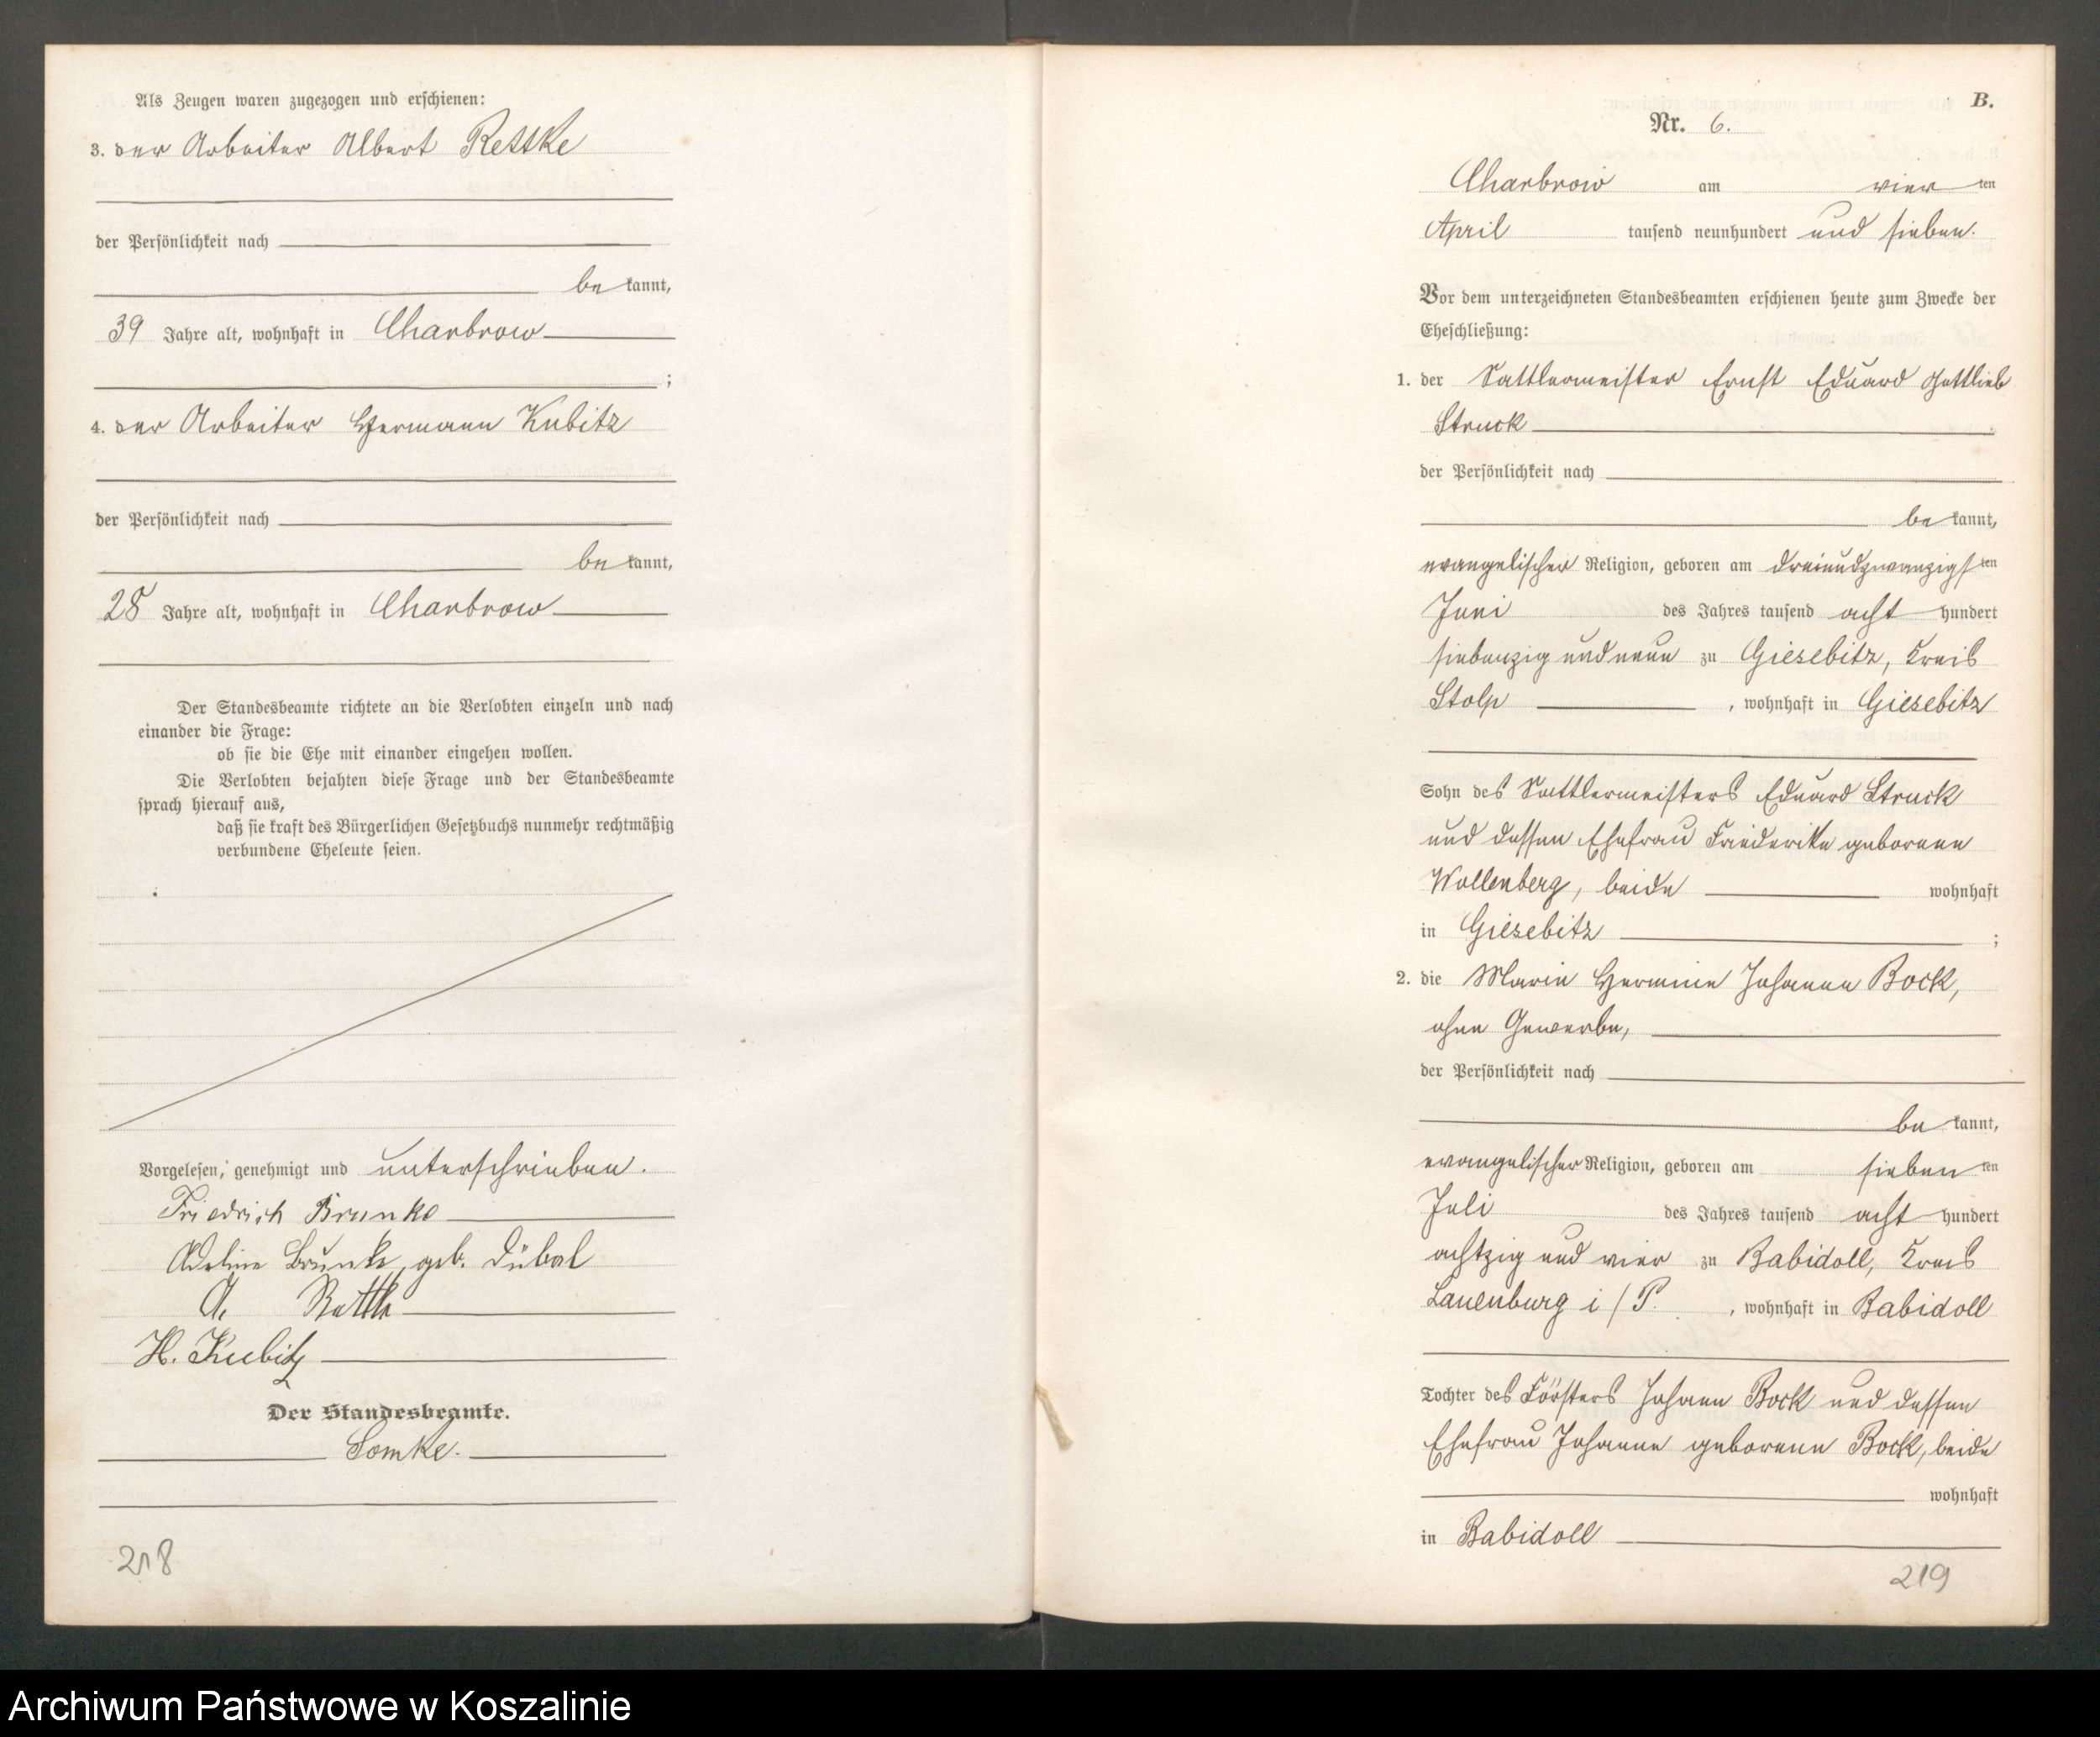 Als Zeugen waren zugezogen und erschienen:
3. der Arbeiter Albert Rettke
der Persönlichkeit nach
be kannt,
39 Jahre alt, wohnhaft in Charbrow
;
4. der Arbeiter Hermann Kubitz
der Persönlichkeit nach
be kannt,
28 Jahre alt, wohnhaft in Charbrow
Der Standesbeamte richtete an die Verlobten einzeln und nach
einander die Frage:
ob sie die Ehe mit einander eingehen wollen.
Die Verlobten bejahten diese Frage und der Standesbeamte
sprach hierauf aus,
daß sie kraft des Bürgerlichen Gesetzbuchs nunmehr rechtmäßig
verbundene Eheleute seien.
Vorgelesen, genehmigt und unterschrieben.
Friedrich Brunke
Adeline Brunke, geb. Dübal
A. Rettke
H. Kubitz
Der Standesbeamte.
Lomke.
218
B.
Nr. 6.
Charbrow am vier ten
April tausend neunhundert und sieben.
Vor dem unterzeichneten Standesbeamten erschienen heute zum Zwecke der
Eheschließung:
1. der Sattlermeister Ernst Eduard Gottlieb
Struck
der Persönlichkeit nach
be kannt,
evangelischer Religion, geboren am dreiundzwanzigs ten
Juni des Jahres tausend acht hundert
siebenzig und neun zu Giesebitz, Kreis
Stolp, wohnhaft in Giesebitz
Sohn des Sattlermeisters Eduard Struck
und dessen Ehefrau Friederike geborene
Wollenberg, beide wohnhaft
in Giesebitz ;
2. die Marie Hermine Johanna Bock,
ohne Gewerbe,
der Persönlichkeit nach
be kannt,
evangelischer Religion, geboren am sieben ten
Juli des Jahres tausend acht hundert
achtzig und vier zu Babidoll, Kreis
Lauenburg i/P., wohnhaft in Babidoll
Tochter des Försters Johann Bock und dessen
Ehefrau Johanne geborene Bock, beide
wohnhaft
in Babidoll
219
Archiwum Państwowe w Koszalinie